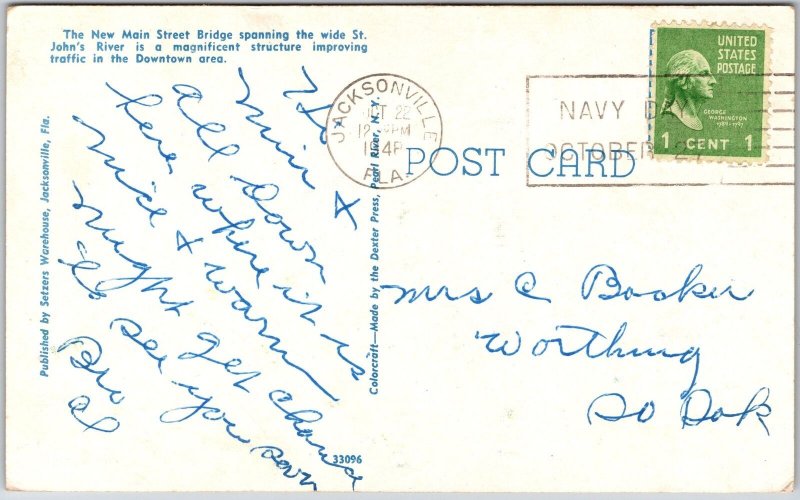 The New Main Street Bridge spanning the wide St.
John's River is a magnificent structure improving
traffic in the Downtown area.
Published by Setzers Warehouse, Jacksonville, Fla.
Hi
Min &
all down
here where it is
nice & warm
might get chance
to see you soon
Bro
al
33096
Colorcraft—Made by the Dexter Press, Pearl River, N.Y.
JACKSONVILLE
OCT 22
12 PM
FLA.
NAVY DAY
OCTOBER 27
UNITED
STATES
POSTAGE
GEORGE
WASHINGTON
1789-1797
1 CENT 1
POST CARD
Mrs C Booker
Worthing
So Dak